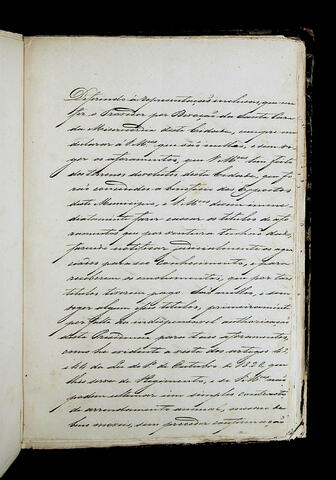 Deferindo á representação inclusa, que me
fez o Provedor por Devoção da Santa Casa
da Misericordia desta Cidade, cumpre-me
declarar á V. Mces que são nullos, e sem vi-
gor os aforamentos, que V. Mces tem feito
dos terrenos devolutos desta Cidade, que fo-
rão concedidos a beneficio dos Expostos
deste Municipio, e V. Mces devem imme-
diatamente fazer cassar os titulos de afo-
ramentos que por ventura tenhão dado,
fazendo notificar judicialmente os que
para seu conhecimento, e para
receberem os emolumentos, que por taes
titulos tiverem pago. São nullos, e sem
vigor alguns esses titulos, primeiramente
por falta da indispensavel authorisação
desta Presidencia para taes aforamentos,
como he evidente a vista dos artigos 42
e 44 da Lei do 1º de Outubro de 1828, que
lhes serve de Regimento, e se V. Mces não
podem celebrar um simples contracto
de arrendamento annual, mesmo de
bens moveis, sem preceder confirmação